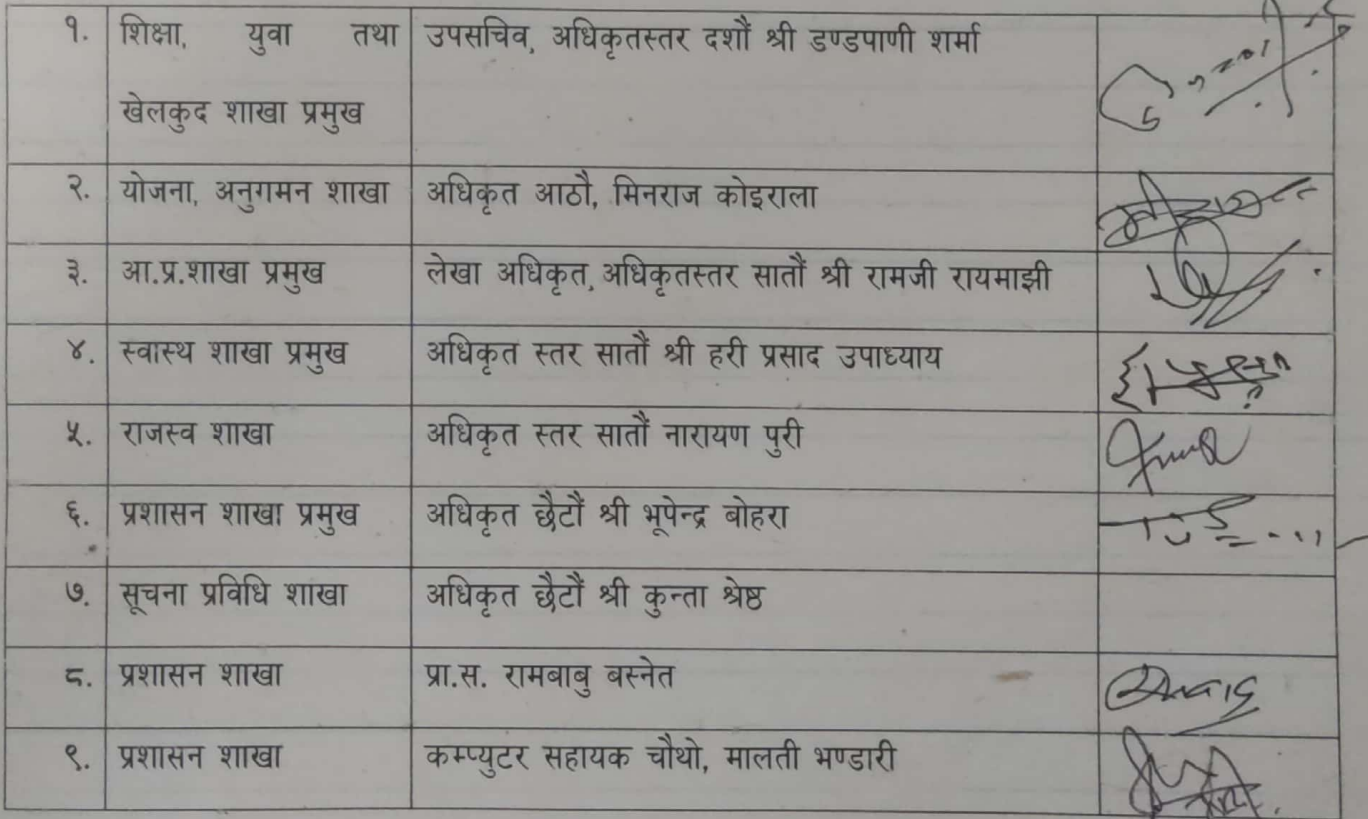 १. शिक्षा, युवा तथा उपसचिव, अधिकृतस्तर दशौं श्री डण्डपाणी शर्मा
खेलकुद शाखा प्रमुख
२. योजना, अनुगमन शाखा अधिकृत आठौ, मिनराज कोइराला
३. आ.प्र.शाखा प्रमुख लेखा अधिकृत, अधिकृतस्तर सातौं श्री रामजी रायमाझी
४. स्वास्थ शाखा प्रमुख अधिकृत स्तर सातौं श्री हरी प्रसाद उपाध्याय
५. राजस्व शाखा अधिकृत स्तर सातौं नारायण पुरी
६. प्रशासन शाखा प्रमुख अधिकृत छैटौं श्री भूपेन्द्र बोहरा
७. सूचना प्रविधि शाखा अधिकृत छैटौं श्री कुन्ता श्रेष्ठ
८. प्रशासन शाखा प्रा.स. रामबाबु बस्नेत
९. प्रशासन शाखा कम्प्युटर सहायक चौथो, मालती भण्डारी